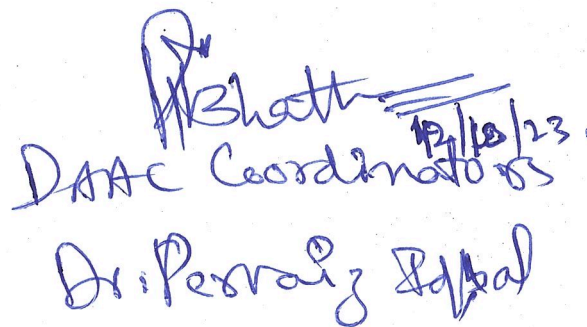 Bhatt
12/10/23
DAAC Coordinators
Dr. Pervaiz Iqbal